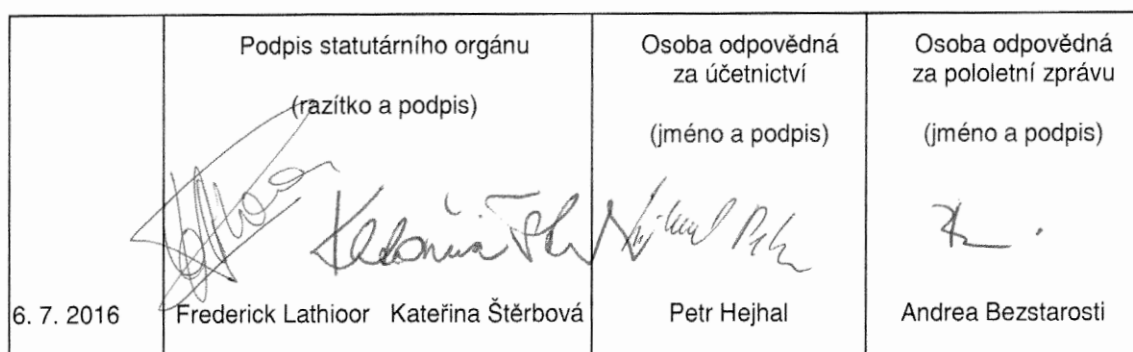 Podpis statutárního orgánu
(razítko a podpis)
Osoba odpovědná
za účetnictví
(jméno a podpis)
Osoba odpovědná
za pololetní zprávu
(jméno a podpis)
6. 7. 2016
Frederick Lathioor Kateřina Štěrbová
Petr Hejhal
Andrea Bezstarosti